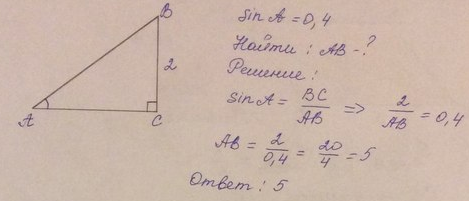 B
2
A
C
Sin A = 0,4
Найти : AB - ?
Решение :
Sin A = BC/AB => 2/AB = 0,4
AB = 2/0,4 = 20/4 = 5
Ответ : 5